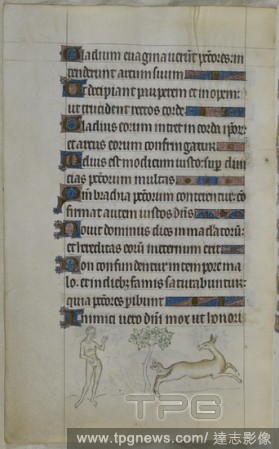 Gladium euaginauerūt pctores: in
tenderunt arcum suum
Ut decipiant pauperem et inopem:
ut trucident rectos corde
Gladius eorum intret in corda ipor:
et arcus eorum confringatur
Melius est modicum iusto: sup diui
cias pctorum multas
Qm̄ brachia pctorum conterentur: cō
firmat autem iustos dn̄s
Nouit dominus dies immaculatorū:
et hereditas eorū ineternum erit
Non confundentur in tempore ma
lo. et in dieb; famis saturabuntur:
quia pctores pibunt
Inimici uero dn̄i mox ut honori
TPG
www.tpgnews.com/達志影像